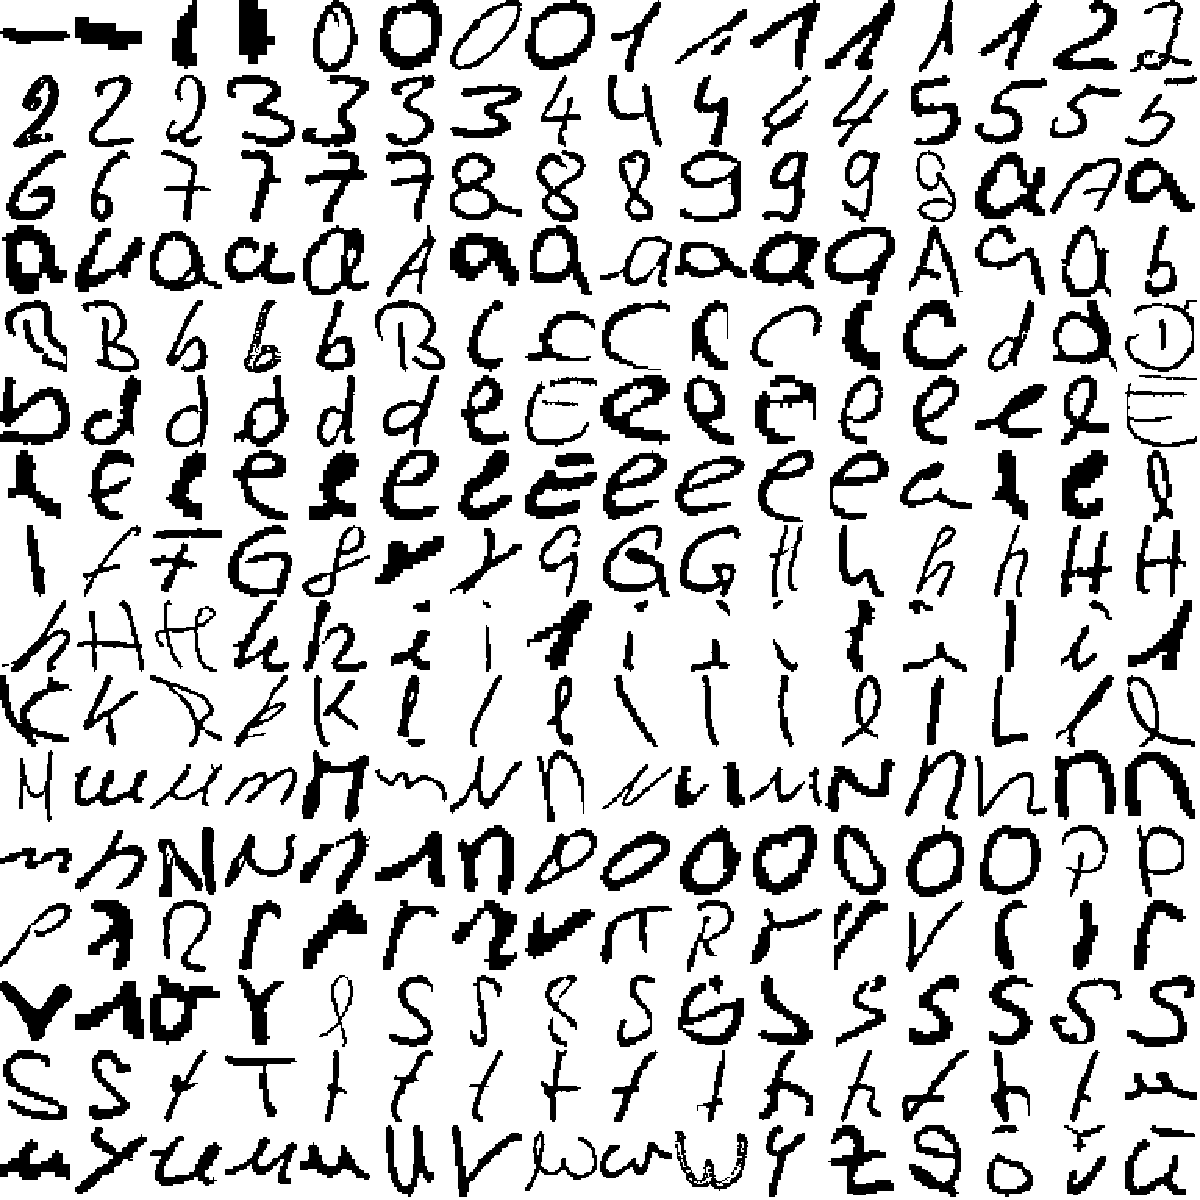 - - 0 0 0 0 1 1 1 1 1 1 2 2
2 2 2 3 3 3 3 4 4 4 4 4 5 5 5 5
6 6 7 7 7 7 8 8 8 9 9 9 9 a A a
a a a a a A a a a a a a A a a b
B B b b b B c c C c c c c d d D
d d d d d e E e e e e e e e E
e e e e e e e E e e e e e e e e
l f F G g r r g G G H h h h H H
h H H h h i i 1 i i i i i l i 1
K K R k K l l l l l l l l L l l
M m u m M m N n n u u N n n n n
n n N N n n n o o o o o o o P P
P r R r r r r r r R r r r r r r
r r r r s S S S S S S S S S S S
S S t T t t t t t t t t t t t u
u y u u u U V w w w y z 2 ō ū